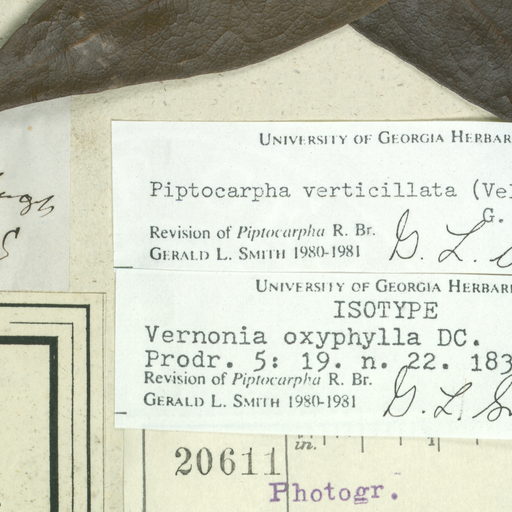 UNIVERSITY OF GEORGIA HERBAR
Piptocarpha verticillata (Vel
G.
Revision of Piptocarpha R. Br.
GERALD L. SMITH 1980-1981
G. L.
UNIVERSITY OF GEORGIA HERBARI
ISOTYPE
Vernonia oxyphylla DC.
Prodr. 5: 19. n. 22. 183
Revision of Piptocarpha R. Br.
GERALD L. SMITH 1980-1981
G. L. S
in.
1
20611
Photogr.